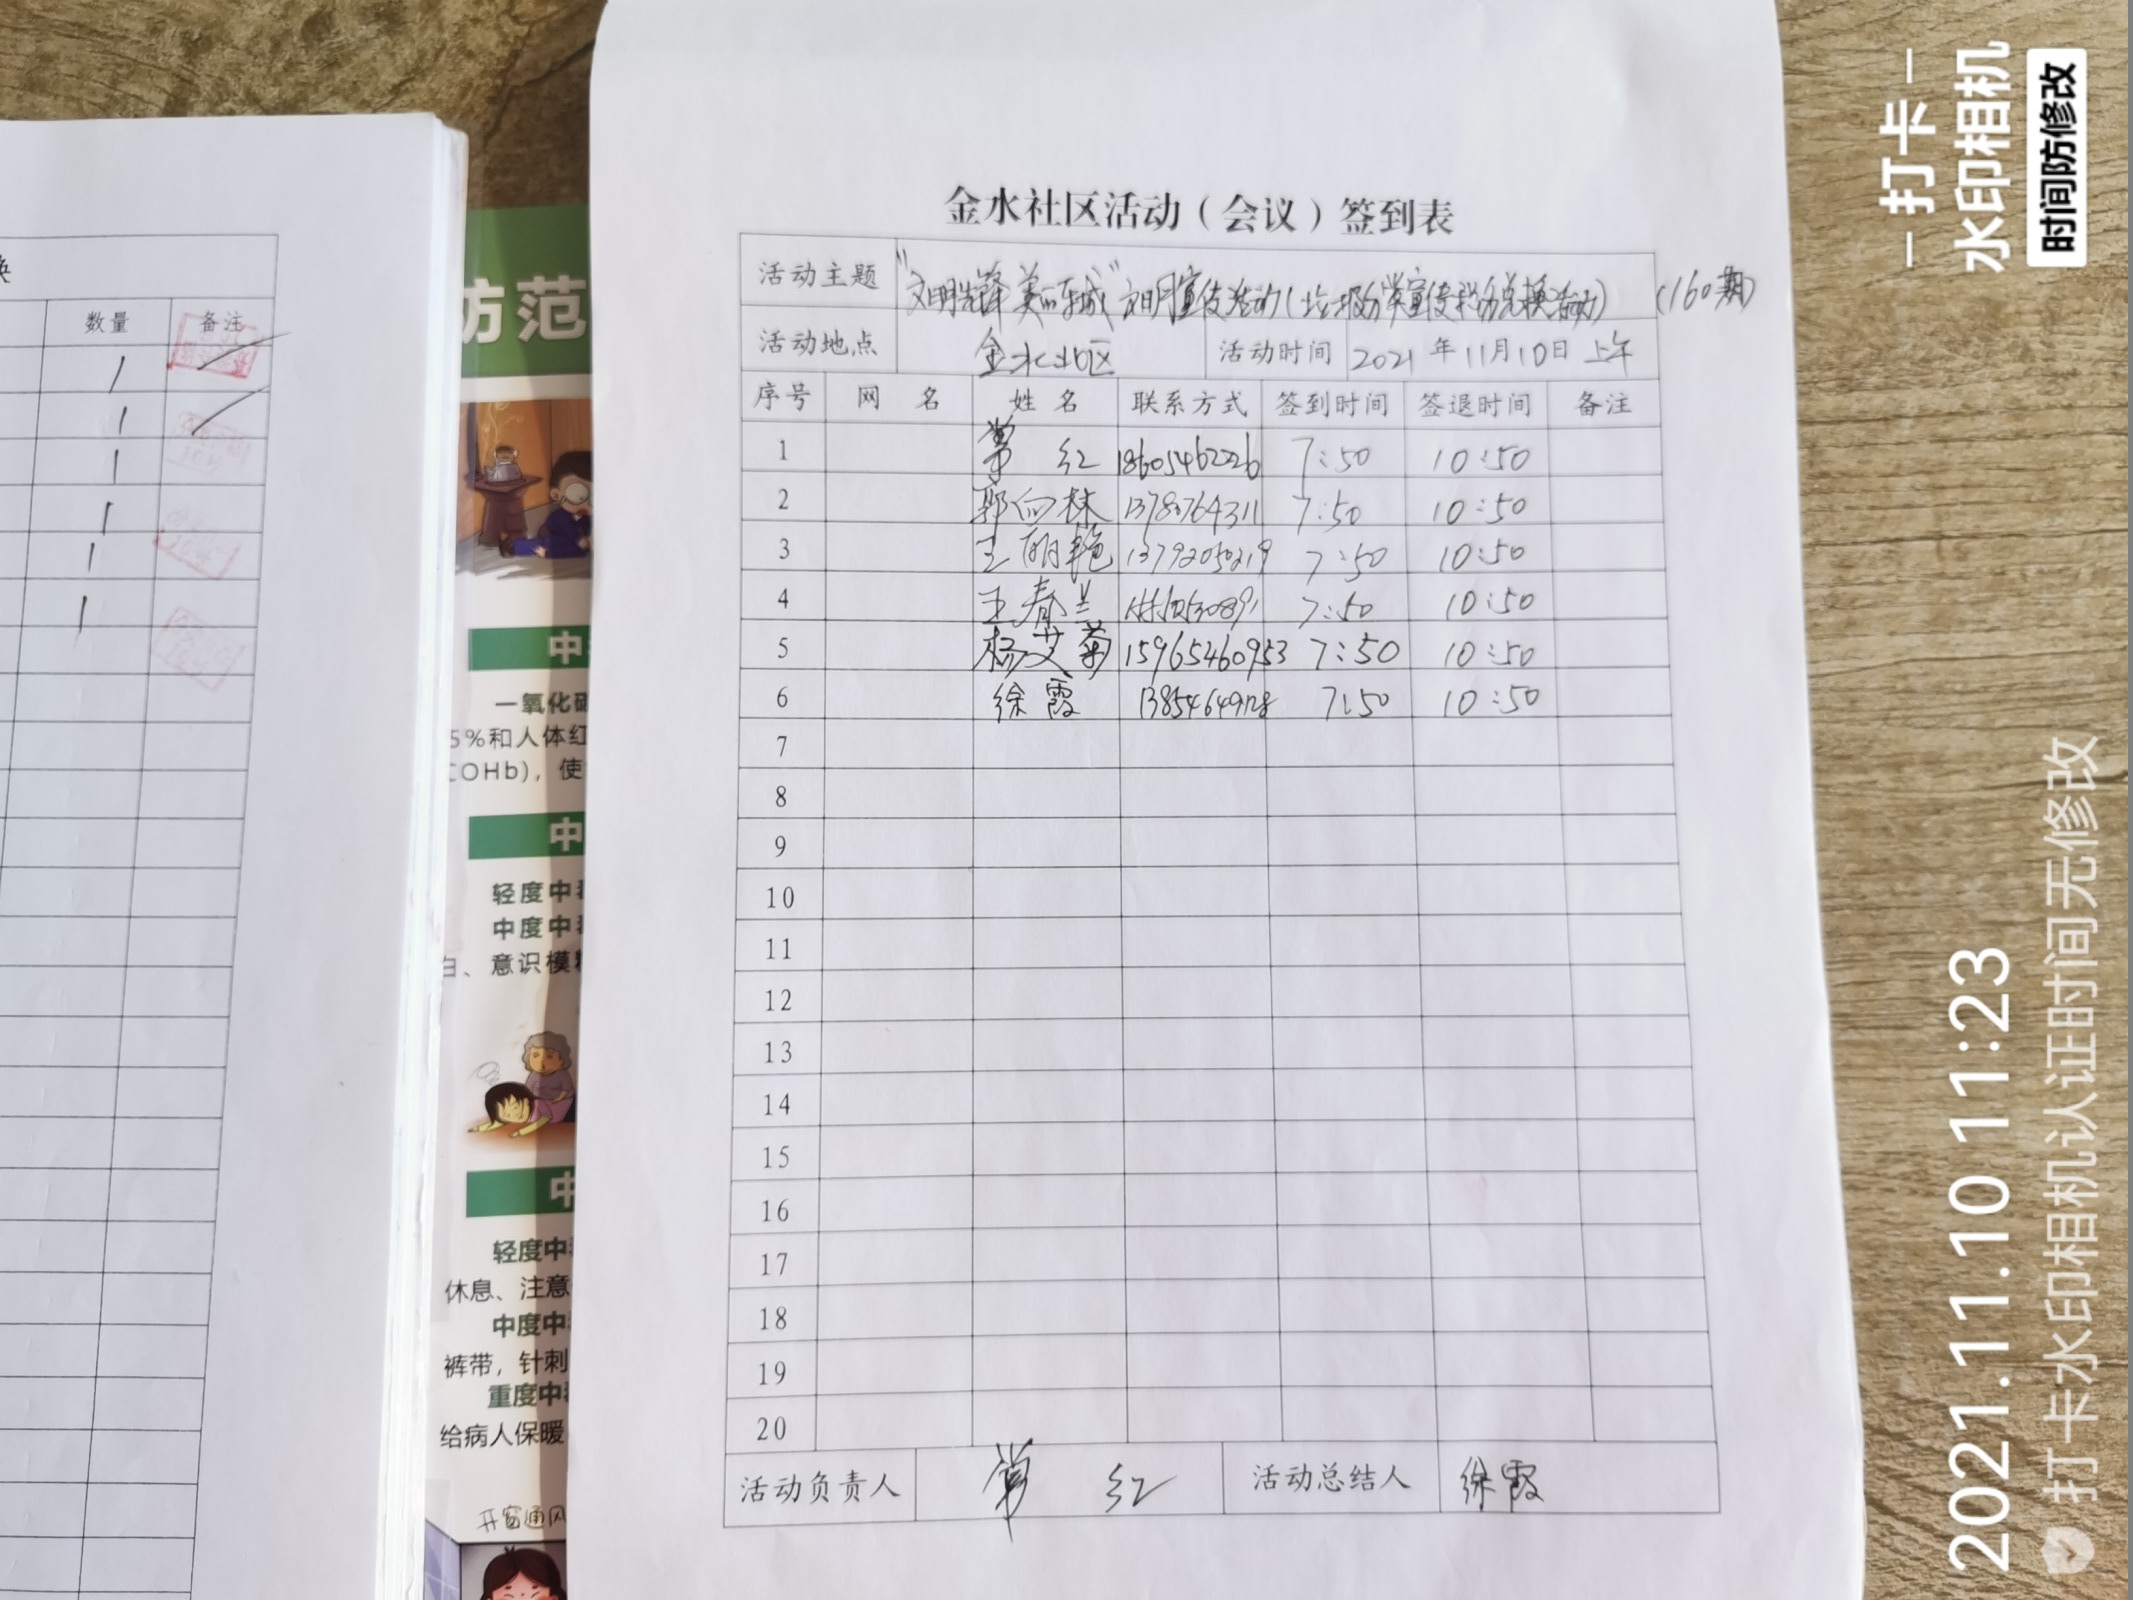 金水社区活动（会议）签到表
活动主题 "文明先锋 美丽东城"文明宣传活动(垃圾分类宣传积分兑换活动) (160期)
活动地点 金水社区 活动时间 2021年11月10日 上午
序号 网 名 姓 名 联系方式 签到时间 签退时间 备注
1 红 18605462226 7:50 10:50
2 郭向林 13780764311 7:50 10:50
3 王丽艳 13792050219 7:50 10:50
4 王春兰 7:50 10:50
5 杨艾菊 15965460953 7:50 10:50
6 徐霞 13854649128 7:50 10:50
7
8
9
10
11
12
13
14
15
16
17
18
19
20
活动负责人 红 活动总结人 徐霞
数量 备注
1
1
1
1
1
1
防范
中
一氧化碳
5%和人体红
COHb)，使
中
轻度中毒
中度中毒
白、意识模糊
中
轻度中毒
休息、注意
中度中毒
裤带，针刺
重度中毒
给病人保暖
开窗通风
打卡
水印相机
时间防修改
2021.11.10 11:23
打卡水印相机认证时间无修改